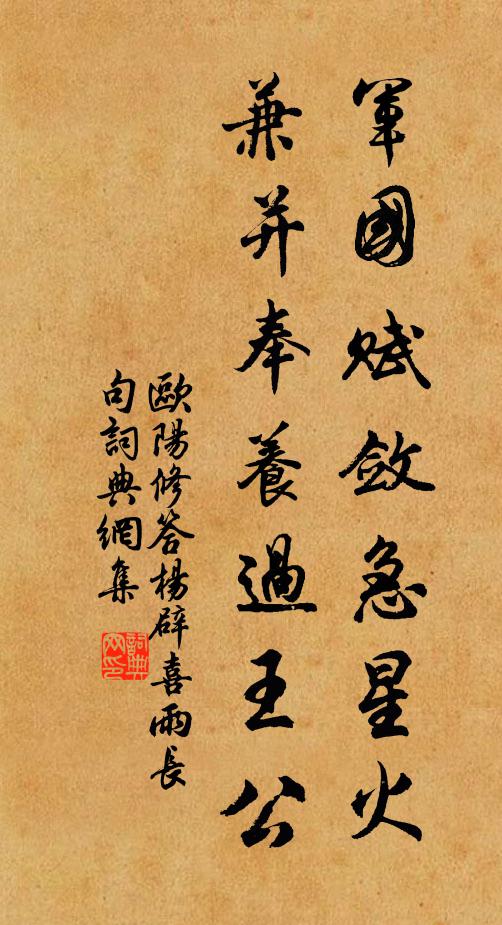 軍國賦斂急星火
兼并奉養過王公
歐陽修答楊辟喜雨長
句詞典網集
詞典
网印